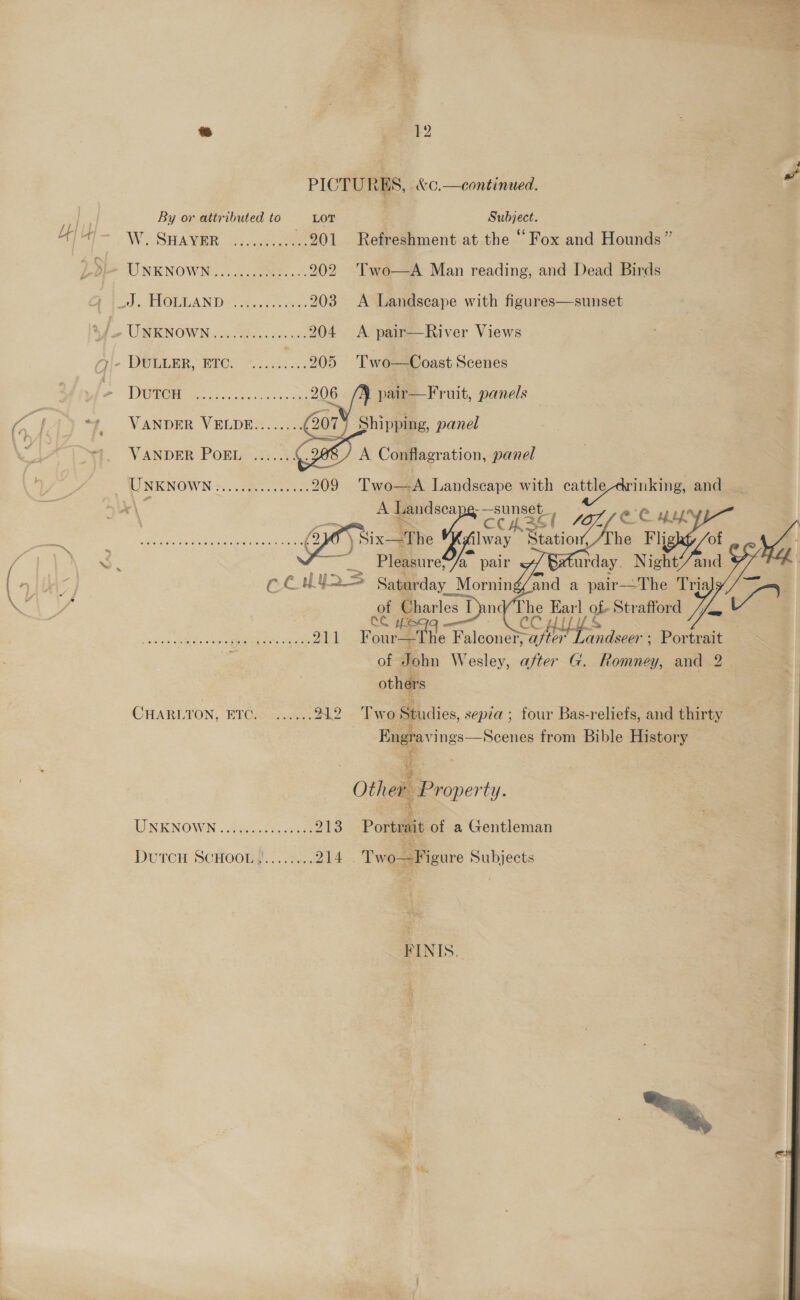 12
PICTURES, &c.—continued.
By or attributed to LOT Subject.
4/4/- W. SHAVER ............201 Refreshment at the “Fox and Hounds”
UNKNOWN ............202 Two—A Man reading, and Dead Birds
J. HOLLAND ............203 A Landscape with figures—sunset
UNKNOWN ............204 A pair—River Views
DULLER, ETC. .........205 Two—Coast Scenes
DUTCH ............206 A pair—Fruit, panels
VANDER VELDE........207 Shipping, panel
VANDER POEL ......208 A Conflagration, panel
UNKNOWN ............209 Two—A Landscape with cattle drinking, and
A Landscape—sunset
............210 Six—The Railway Station, The Flight of
Pleasure, a pair Saturday Night and
Saturday Morning and a pair—The Trial
of Charles I and The Earl of Strafford
............211 Four—The Falconer, after Landseer; Portrait
of John Wesley, after G. Romney, and 2
others
CHARLTON, ETC. ......212 Two Studies, sepia; four Bas-reliefs, and thirty
Engravings—Scenes from Bible History
Other Property.
UNKNOWN ............213 Portrait of a Gentleman
DUTCH SCHOOL .........214 Two—Figure Subjects
FINIS.